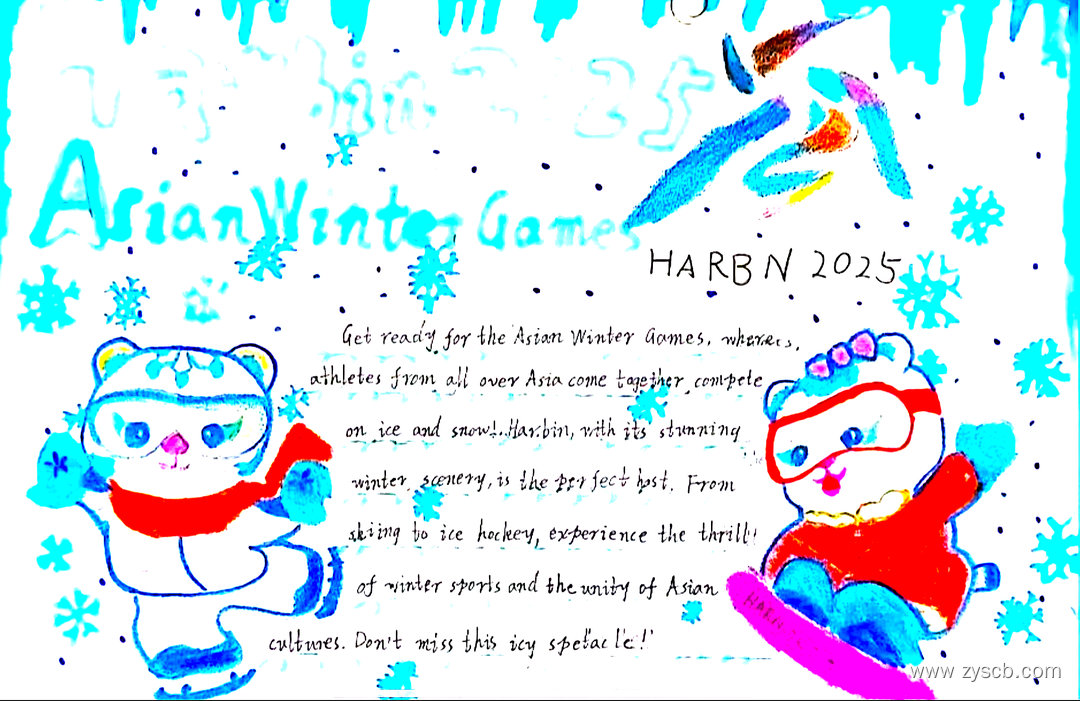 bin 2025
Asian Winter Games
HARBN 2025
Get ready for the Asian Winter Games, where
athletes from all over Asia come tagether compete
on ice and snow!..Harbin, with its stunning
winter scenery, is the perfect host. From
skiing to ice hockey, experience the thrill
of winter sports and the unity of Asian
cultures. Don't miss this icy spetacle!
www.zyscb.com